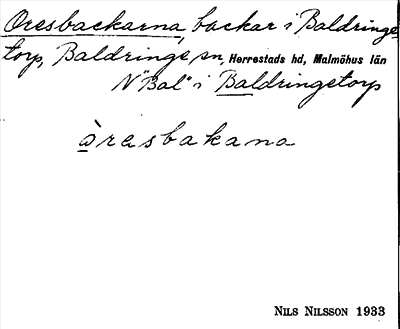 Oresbackarna, backar i Baldringe-
torp, Baldringe sn, Herrestads hd, Malmöhus län
N "Bal" i Baldringetorp
òresbakana
NILS NILSSON 1933